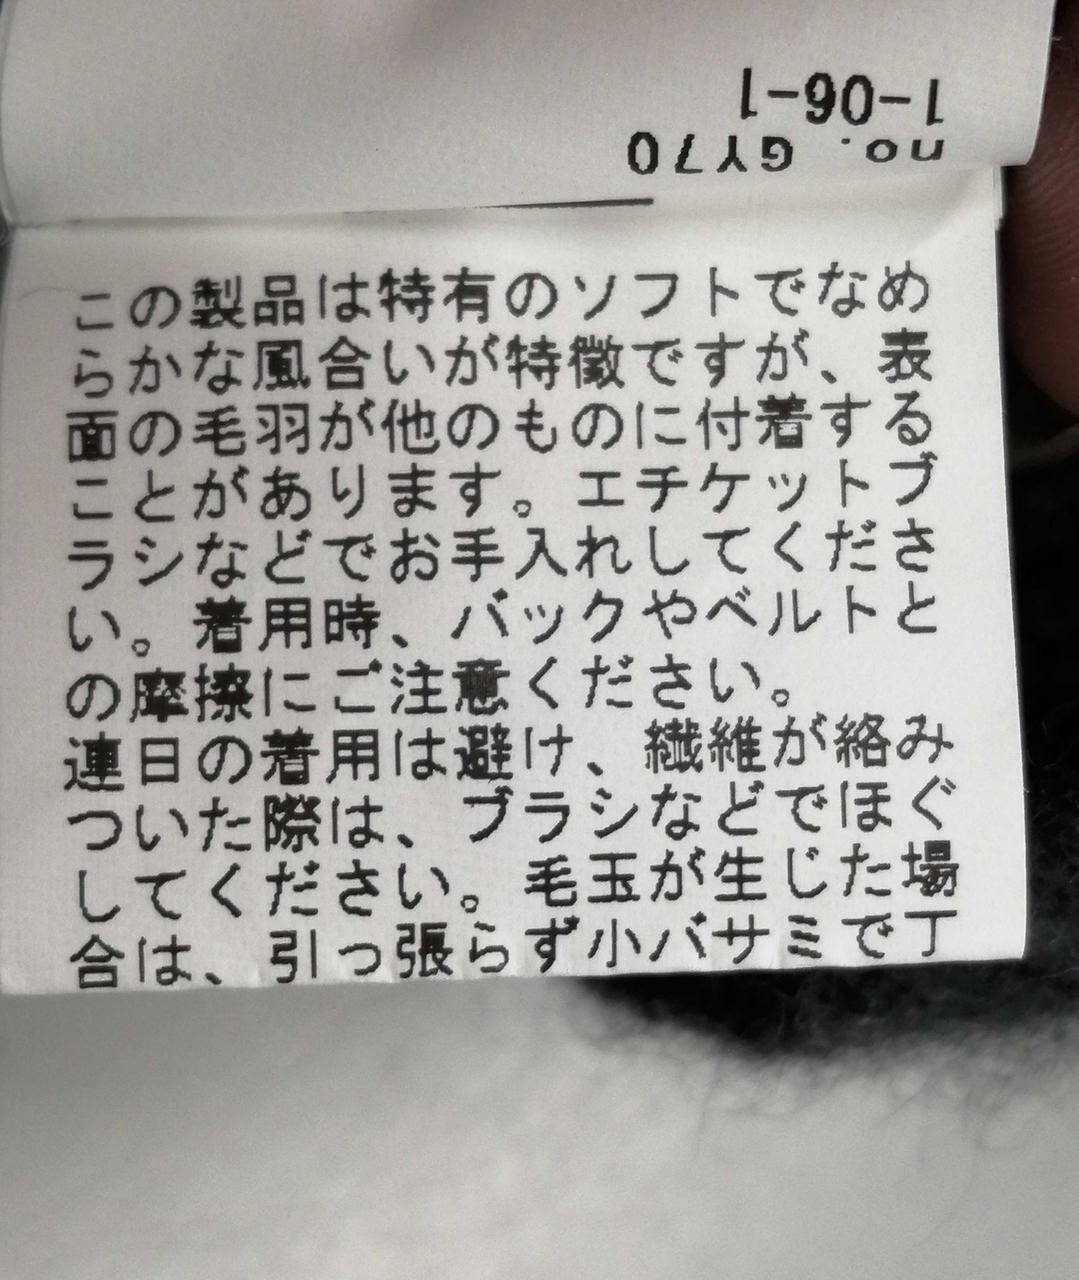 no. GY70
1-06-1
この製品は特有のソフトでなめ
らかな風合いが特徴ですが、表
面の毛羽が他のものに付着する
ことがあります。エチケットブ
ラシなどでお手入れしてくださ
い。着用時、バックやベルトと
の摩擦にご注意ください。
連日の着用は避け、繊維が絡み
ついた際は、ブラシなどでほぐ
してください。毛玉が生じた場
合は、引っ張らず小バサミで丁